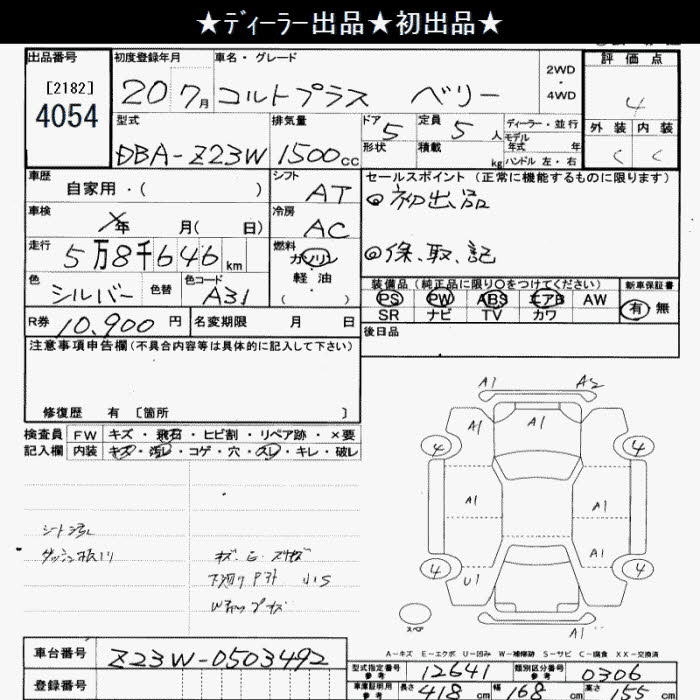 ★ディーラー出品★初出品★
出品番号
[2182]
4054
初度登録年月
20 7月
車名・グレード
コルトプラス ベリー
2WD
・
4WD
評価点
4
外装 内装
C C
型式
DBA-Z23W
排気量
1500cc
ドア 5
形状
定員 5 人
積載 kg
ディーラー・並行
モデル
年式 年
ハンドル 左・右
車歴
自家用・( )
シフト
AT
セールスポイント(正常に機能するものに限ります)
◎初出品
◎保、取、記
車検
年 月( 日)
冷房
AC
走行
5万8千646km
燃料
ガソリン
・
軽油
( )
色
シルバー
色替
色コード
A31
装備品(純正品に限り○をつけてください)
PS PW ABS エアB AW
SR ナビ TV カワ
新車保証書
有 無
R券 10,900円
名変期限 月 日
後日品
注意事項申告欄(不具合内容等は具体的に記入して下さい)
修復歴 有 [箇所 ]
検査員
記入欄
FW キズ・飛石・ヒビ割・リペア跡・×要
内装 キズ・汚レ・コゲ・穴・スレ・キレ・破レ
シート汚レ
小S
A1 A2
A1 A1
4 4
A1 A1
A1
4 4
U1
スペア
A1
A-キズ E-エクボ U-凹み W-補修跡 S-サビ C-腐食 XX-交換済
車台番号
Z23W-0503492
登録番号
型式指定番号
参考
12641
類別区分番号
参考
0306
車庫証明用
参考
長さ 418cm
幅 168cm
高さ 155cm